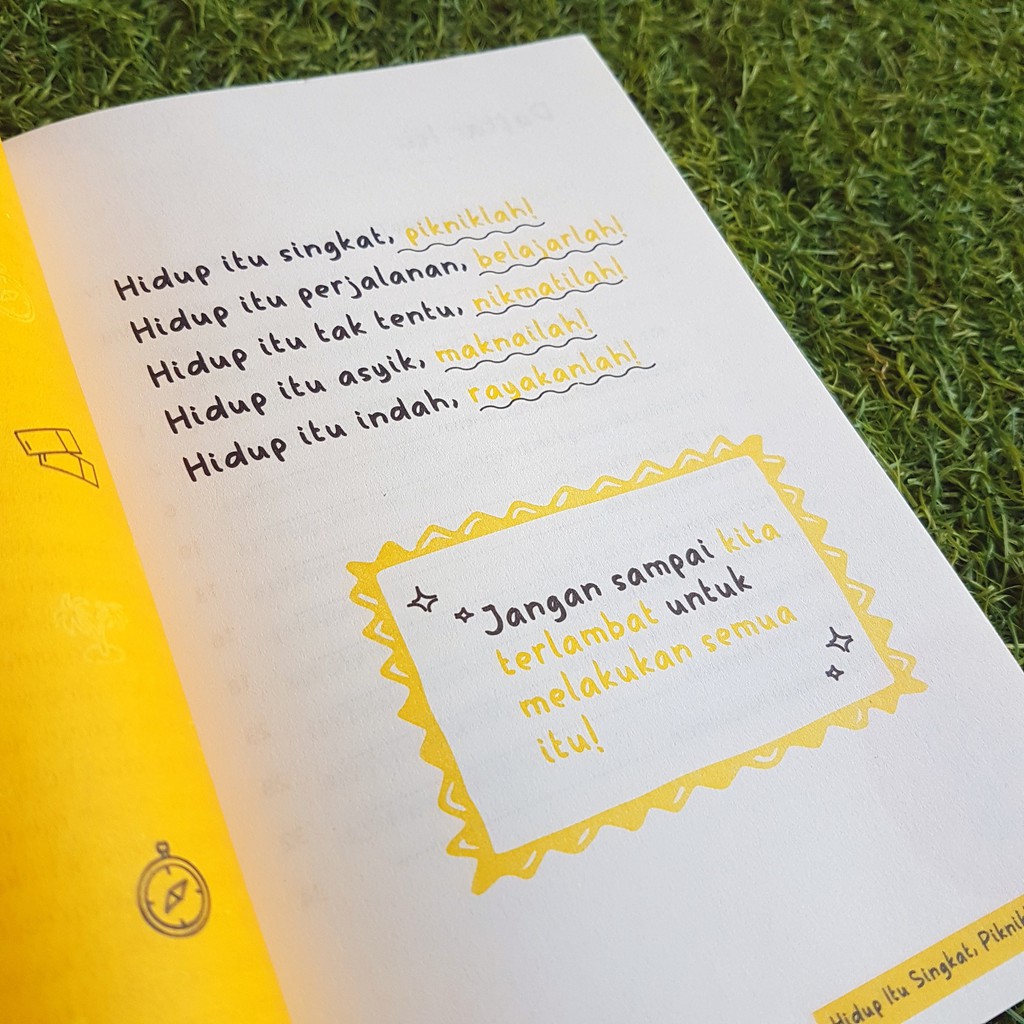 Hidup itu singkat, pikniklah!
Hidup itu perjalanan, belajarlah!
Hidup itu tak tentu, nikmatilah!
Hidup itu asyik, maknailah!
Hidup itu indah, rayakanlah!
Jangan sampai kita
terlambat untuk
melakukan semua
itu!
Hidup Itu Singkat,